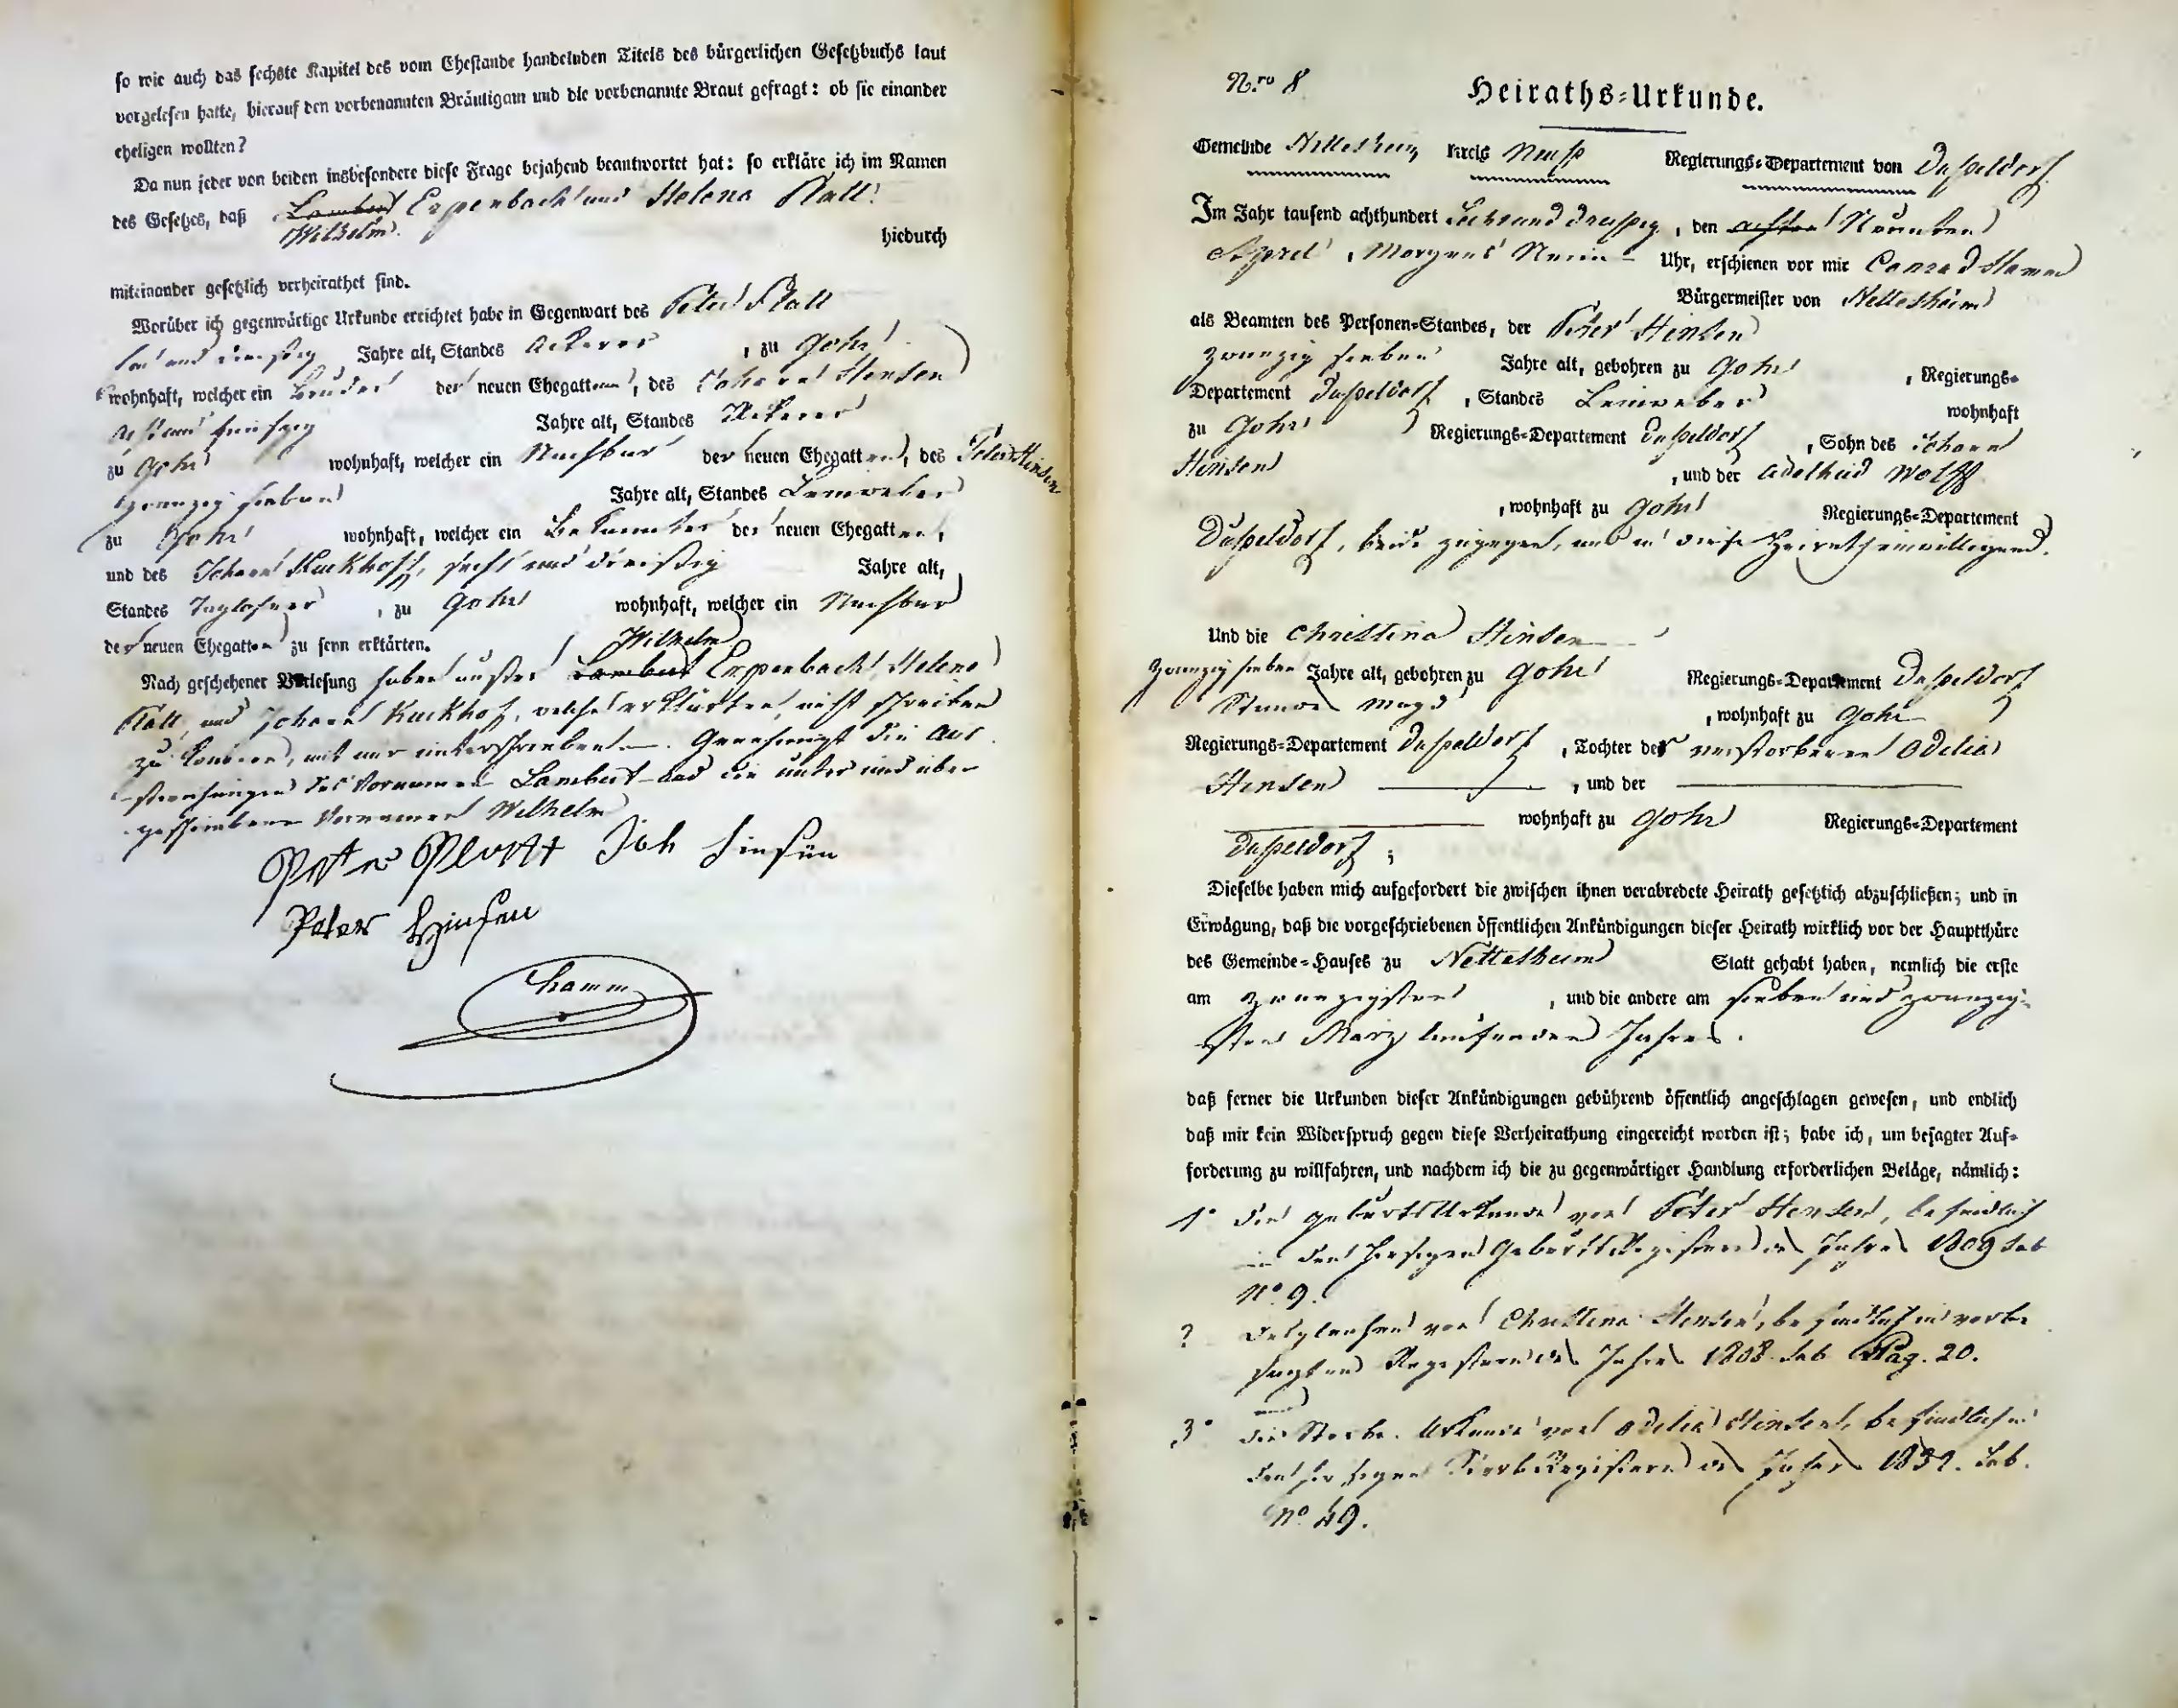 so wie auch das sechste Kapitel des vom Ehestande handelnden Titels des bürgerlichen Gesetzbuchs laut
vorgelesen hatte, hierauf den vorbenannten Bräutigam und die vorbenannte Braut gefragt: ob sie einander
eheligen wollten?
Da nun jeder von beiden insbesondere diese Frage bejahend beantwortet hat: so erkläre ich im Namen
des Gesetzes, daß Lambert Erpenbach und Helena Platt
Wilhelm
hiedurch
miteinander gesetzlich verheirathet sind.
Worüber ich gegenwärtige Urkunde errichtet habe in Gegenwart des Peter Platt
und dreißig Jahre alt, Standes Ackerer, zu Gohr
wohnhaft, welcher ein Bruder der neuen Ehegattin, des Johann Hinsen
acht und fünfzig Jahre alt, Standes Ackerer
zu Gohr wohnhaft, welcher ein Nachbar der neuen Ehegatten, des Peter Hinsen
zwanzig sieben Jahre alt, Standes Leinweber
zu Gohr wohnhaft, welcher ein Bekannter der neuen Ehegatten,
und des Johann Kuckhoff, sechs und dreißig Jahre alt,
Standes Taglöhner, zu Gohr wohnhaft, welcher ein Nachbar
der neuen Ehegatten zu seyn erklärten.
Wilhelm
Nach geschehener Vorlesung haben außer Lambert Erpenbach, Helena
Platt und Johann Kuckhof, welche erklärten, nicht schreiben
zu können, mit mir unterschrieben. Genehmigt die Aus-
streichungen des Vornamen Lambert und die unter und über
geschriebene Vornamen Wilhelm
Peter Platt Joh Hinsen
Peter Hinsen
Hamm
Nro 8
Heiraths-Urkunde.
Gemeinde Nettesheim Kreis Neuß Regierungs-Departement von Dußeldorf
Im Jahr tausend achthundert Sechs und dreißig, den achten Neunten
April, Morgens Neun Uhr, erschienen vor mir Conrad Hamm
Bürgermeister von Nettesheim
als Beamten des Personen-Standes, der Peter Hinsen
zwanzig sieben Jahre alt, gebohren zu Gohr, Regierungs-
Departement Dußeldorf, Standes Leinweber wohnhaft
zu Gohr Regierungs-Departement Dußeldorf, Sohn des Johann
Hinsen, und der Adelheid Wolff
, wohnhaft zu Gohr Regierungs-Departement
Dußeldorf, beide zugegen, und in diese Heirath einwilligend.
Und die Christina Hinsen
zwanzig sieben Jahre alt, gebohren zu Gohr Regierungs-Departement Dußeldorf
Standes Magd, wohnhaft zu Gohr
Regierungs-Departement Dußeldorf, Tochter der verstorbenen Odilia
Hinsen, und der
wohnhaft zu Gohr Regierungs-Departement
Dußeldorf;
Dieselbe haben mich aufgefordert die zwischen ihnen verabredete Heirath gesetzlich abzuschließen; und in
Erwägung, daß die vorgeschriebenen öffentlichen Ankündigungen dieser Heirath wirklich vor der Hauptthüre
des Gemeinde-Hauses zu Nettesheim Statt gehabt haben, nemlich die erste
am zwanzigsten, und die andere am sieben und zwanzig-
sten März laufenden Jahres.
daß ferner die Urkunden dieser Ankündigungen gebührend öffentlich angeschlagen gewesen, und endlich
daß mir kein Widerspruch gegen diese Verheirathung eingereicht worden ist; habe ich, um besagter Auf-
forderung zu willfahren, und nachdem ich die zu gegenwärtiger Handlung erforderlichen Beläge, nämlich:
1° die Geburts Urkunde von Peter Hinsen, befindlich
in den hiesigen Geburts Registern des Jahres 1809 sub
N° 9.
2 desgleichen von Christina Hinsen, befindlich in vorbe-
sagten Registern des Jahres 1808 sub Pag. 20.
und
3° die Sterbe Urkunde von Odilia Hinsen, befindlich in
den hiesigen Sterb Registern des Jahres 1832. sub.
N° 49.